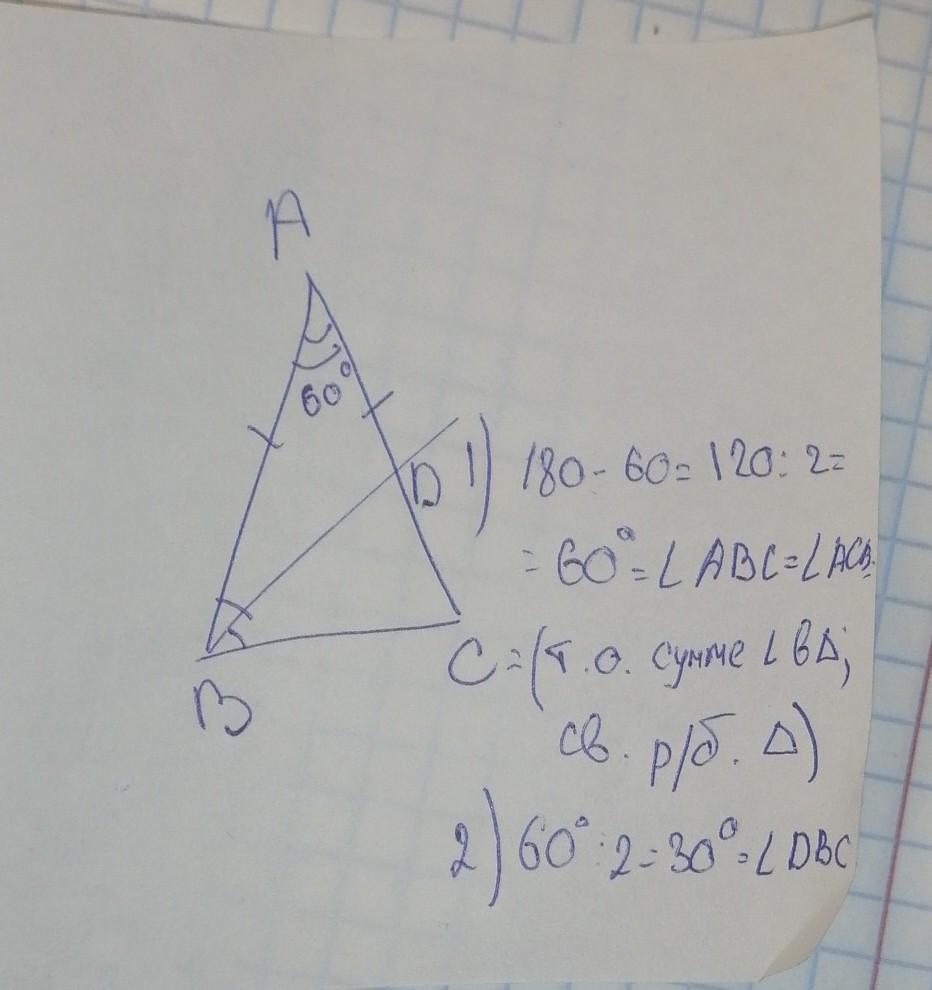 A
60°
D
B
C
1) 180 - 60 = 120 : 2 =
= 60° = ∠ABC = ∠ACB
= (т.о. сумме ∠ в Δ;
св. р/б. Δ)
2) 60° : 2 = 30° = ∠DBC